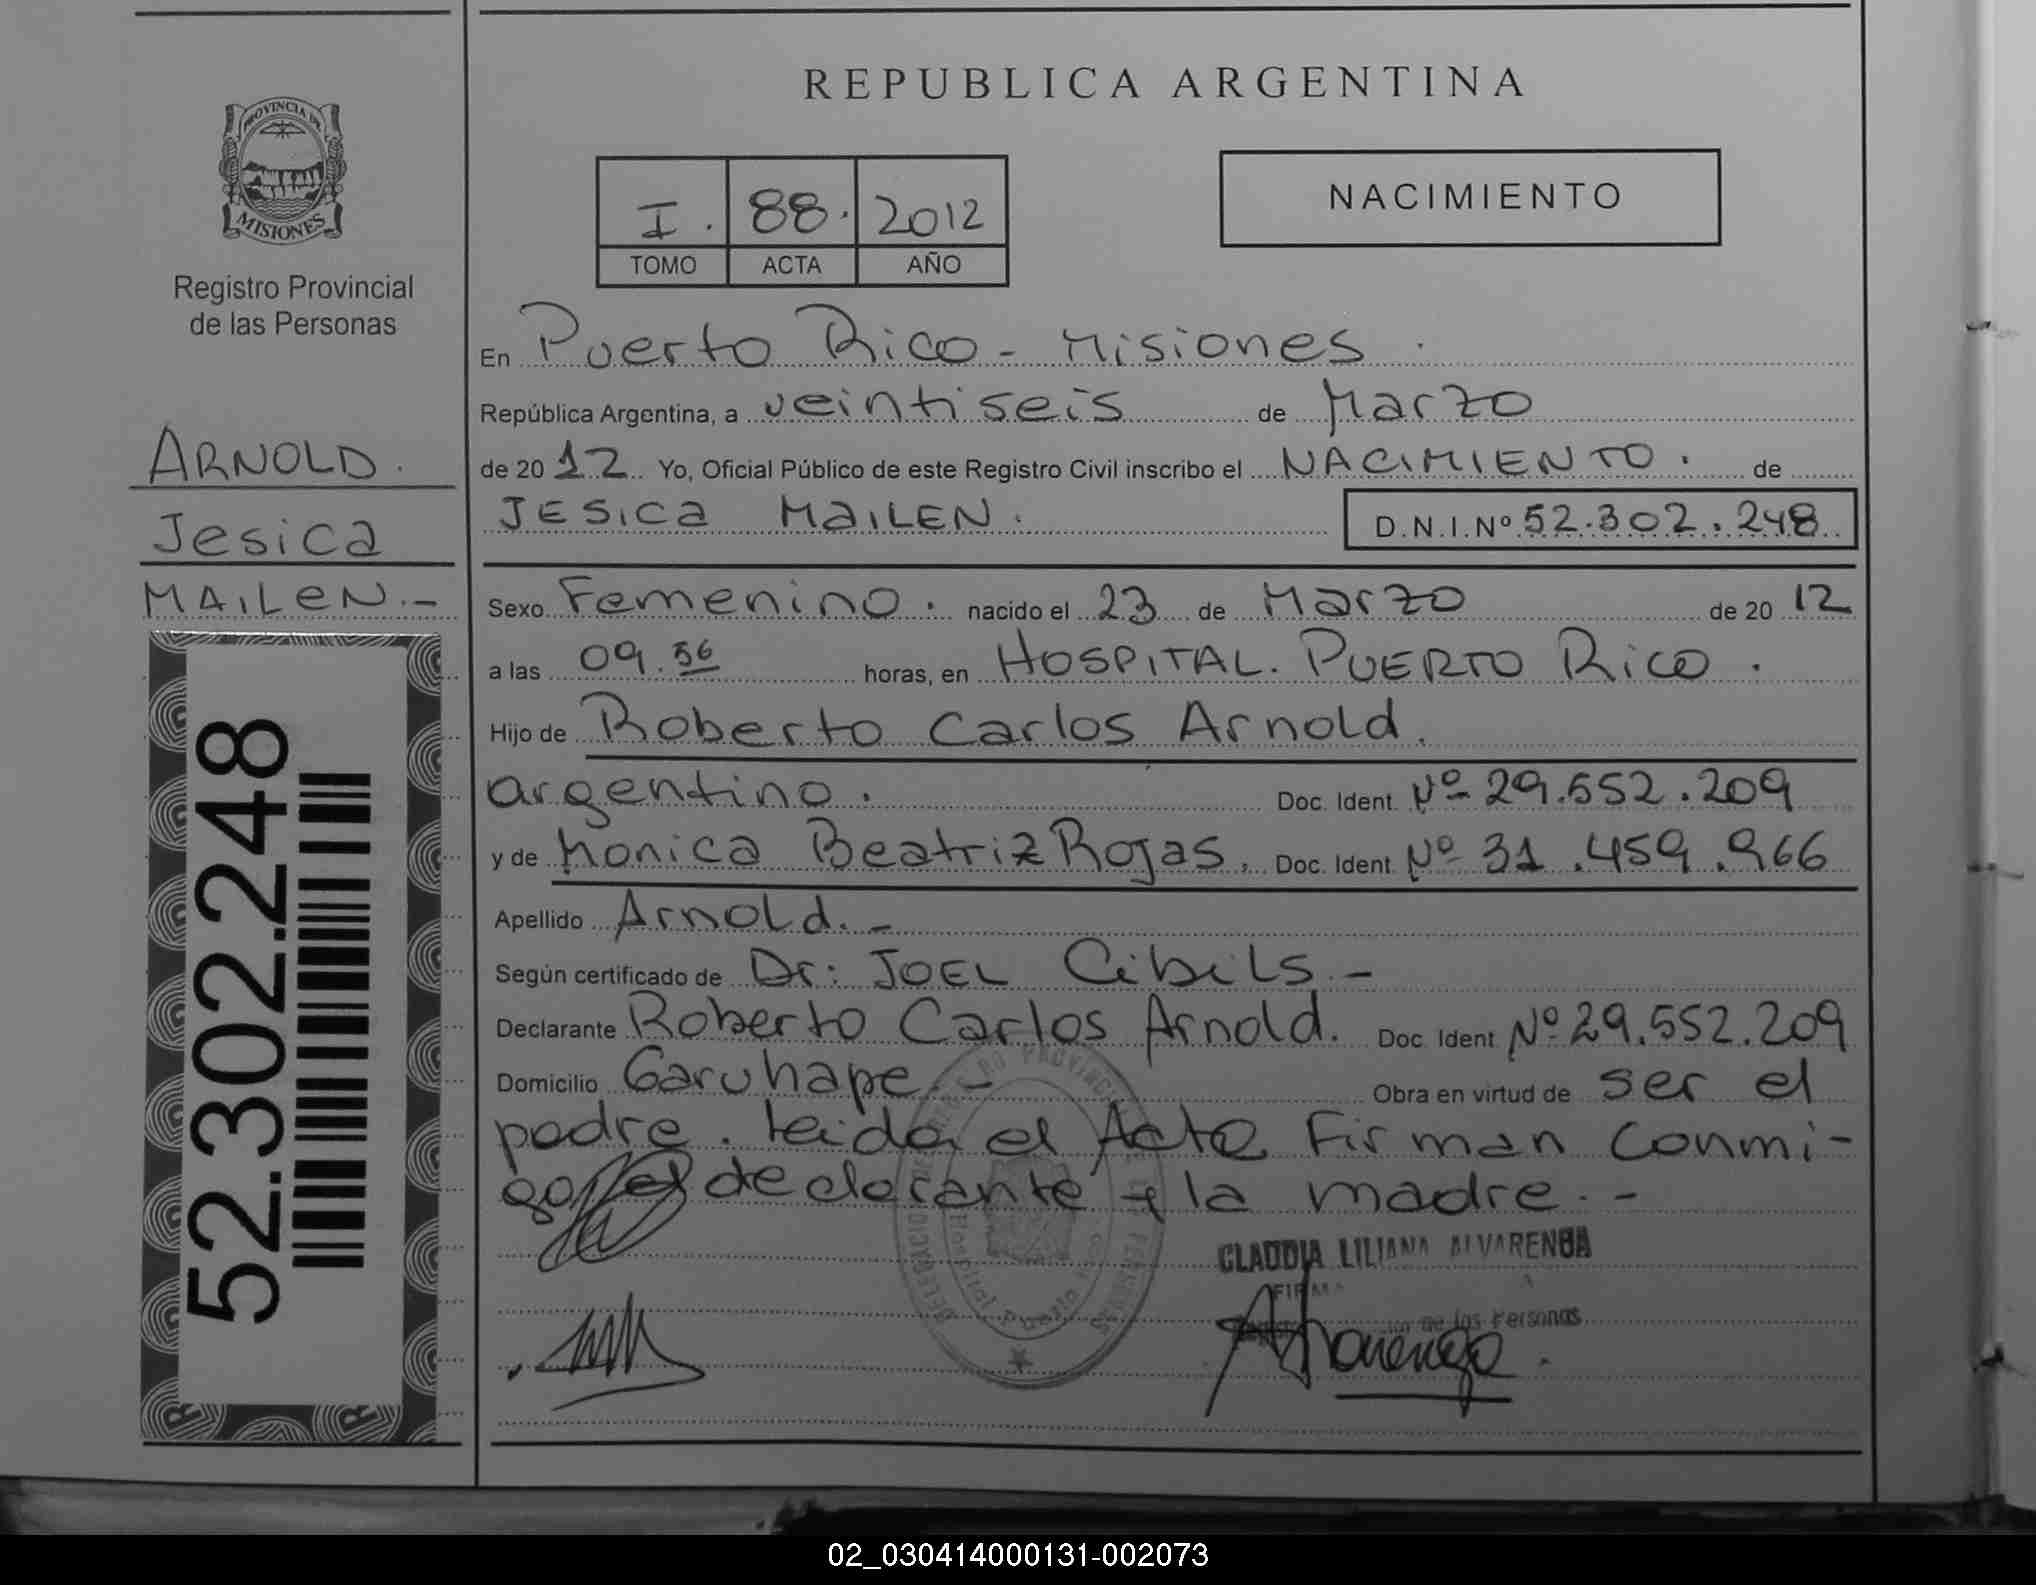 REPUBLICA ARGENTINA
PROVINCIA DE
MISIONES
Registro Provincial
de las Personas
I. 88. 2012
TOMO ACTA AÑO
NACIMIENTO
ARNOLD.
Jesica
MAILeN.-
52.302.248
En Puerto Rico - Misiones.
República Argentina, a veintiseis de Marzo
de 2012 Yo, Oficial Público de este Registro Civil inscribo el NACIMIENTO. de
JESICA MAILEN. D.N.I.Nº 52.302.248
Sexo Femenino. nacido el 23 de Marzo de 2012
a las 09.56 horas, en HOSPITAL. PUERTO RICO.
Hijo de Roberto Carlos Arnold.
argentino. Doc. Ident. Nº 29.552.209
y de Monica Beatriz Rojas, Doc. Ident. Nº 31.459.966
Apellido Arnold.-
Según certificado de Dr: JOEL Cibils.-
Declarante Roberto Carlos Arnold. Doc. Ident. Nº 29.552.209
Domicilio Garuhape.- Obra en virtud de ser el
padre. leida el Acta Firman conmi-
go, el declarante y la madre.-
CLAUDIA LILIANA ALVARENGA
FIRMA
de las Personas
Hospital Puerto Rico
02_030414000131-002073